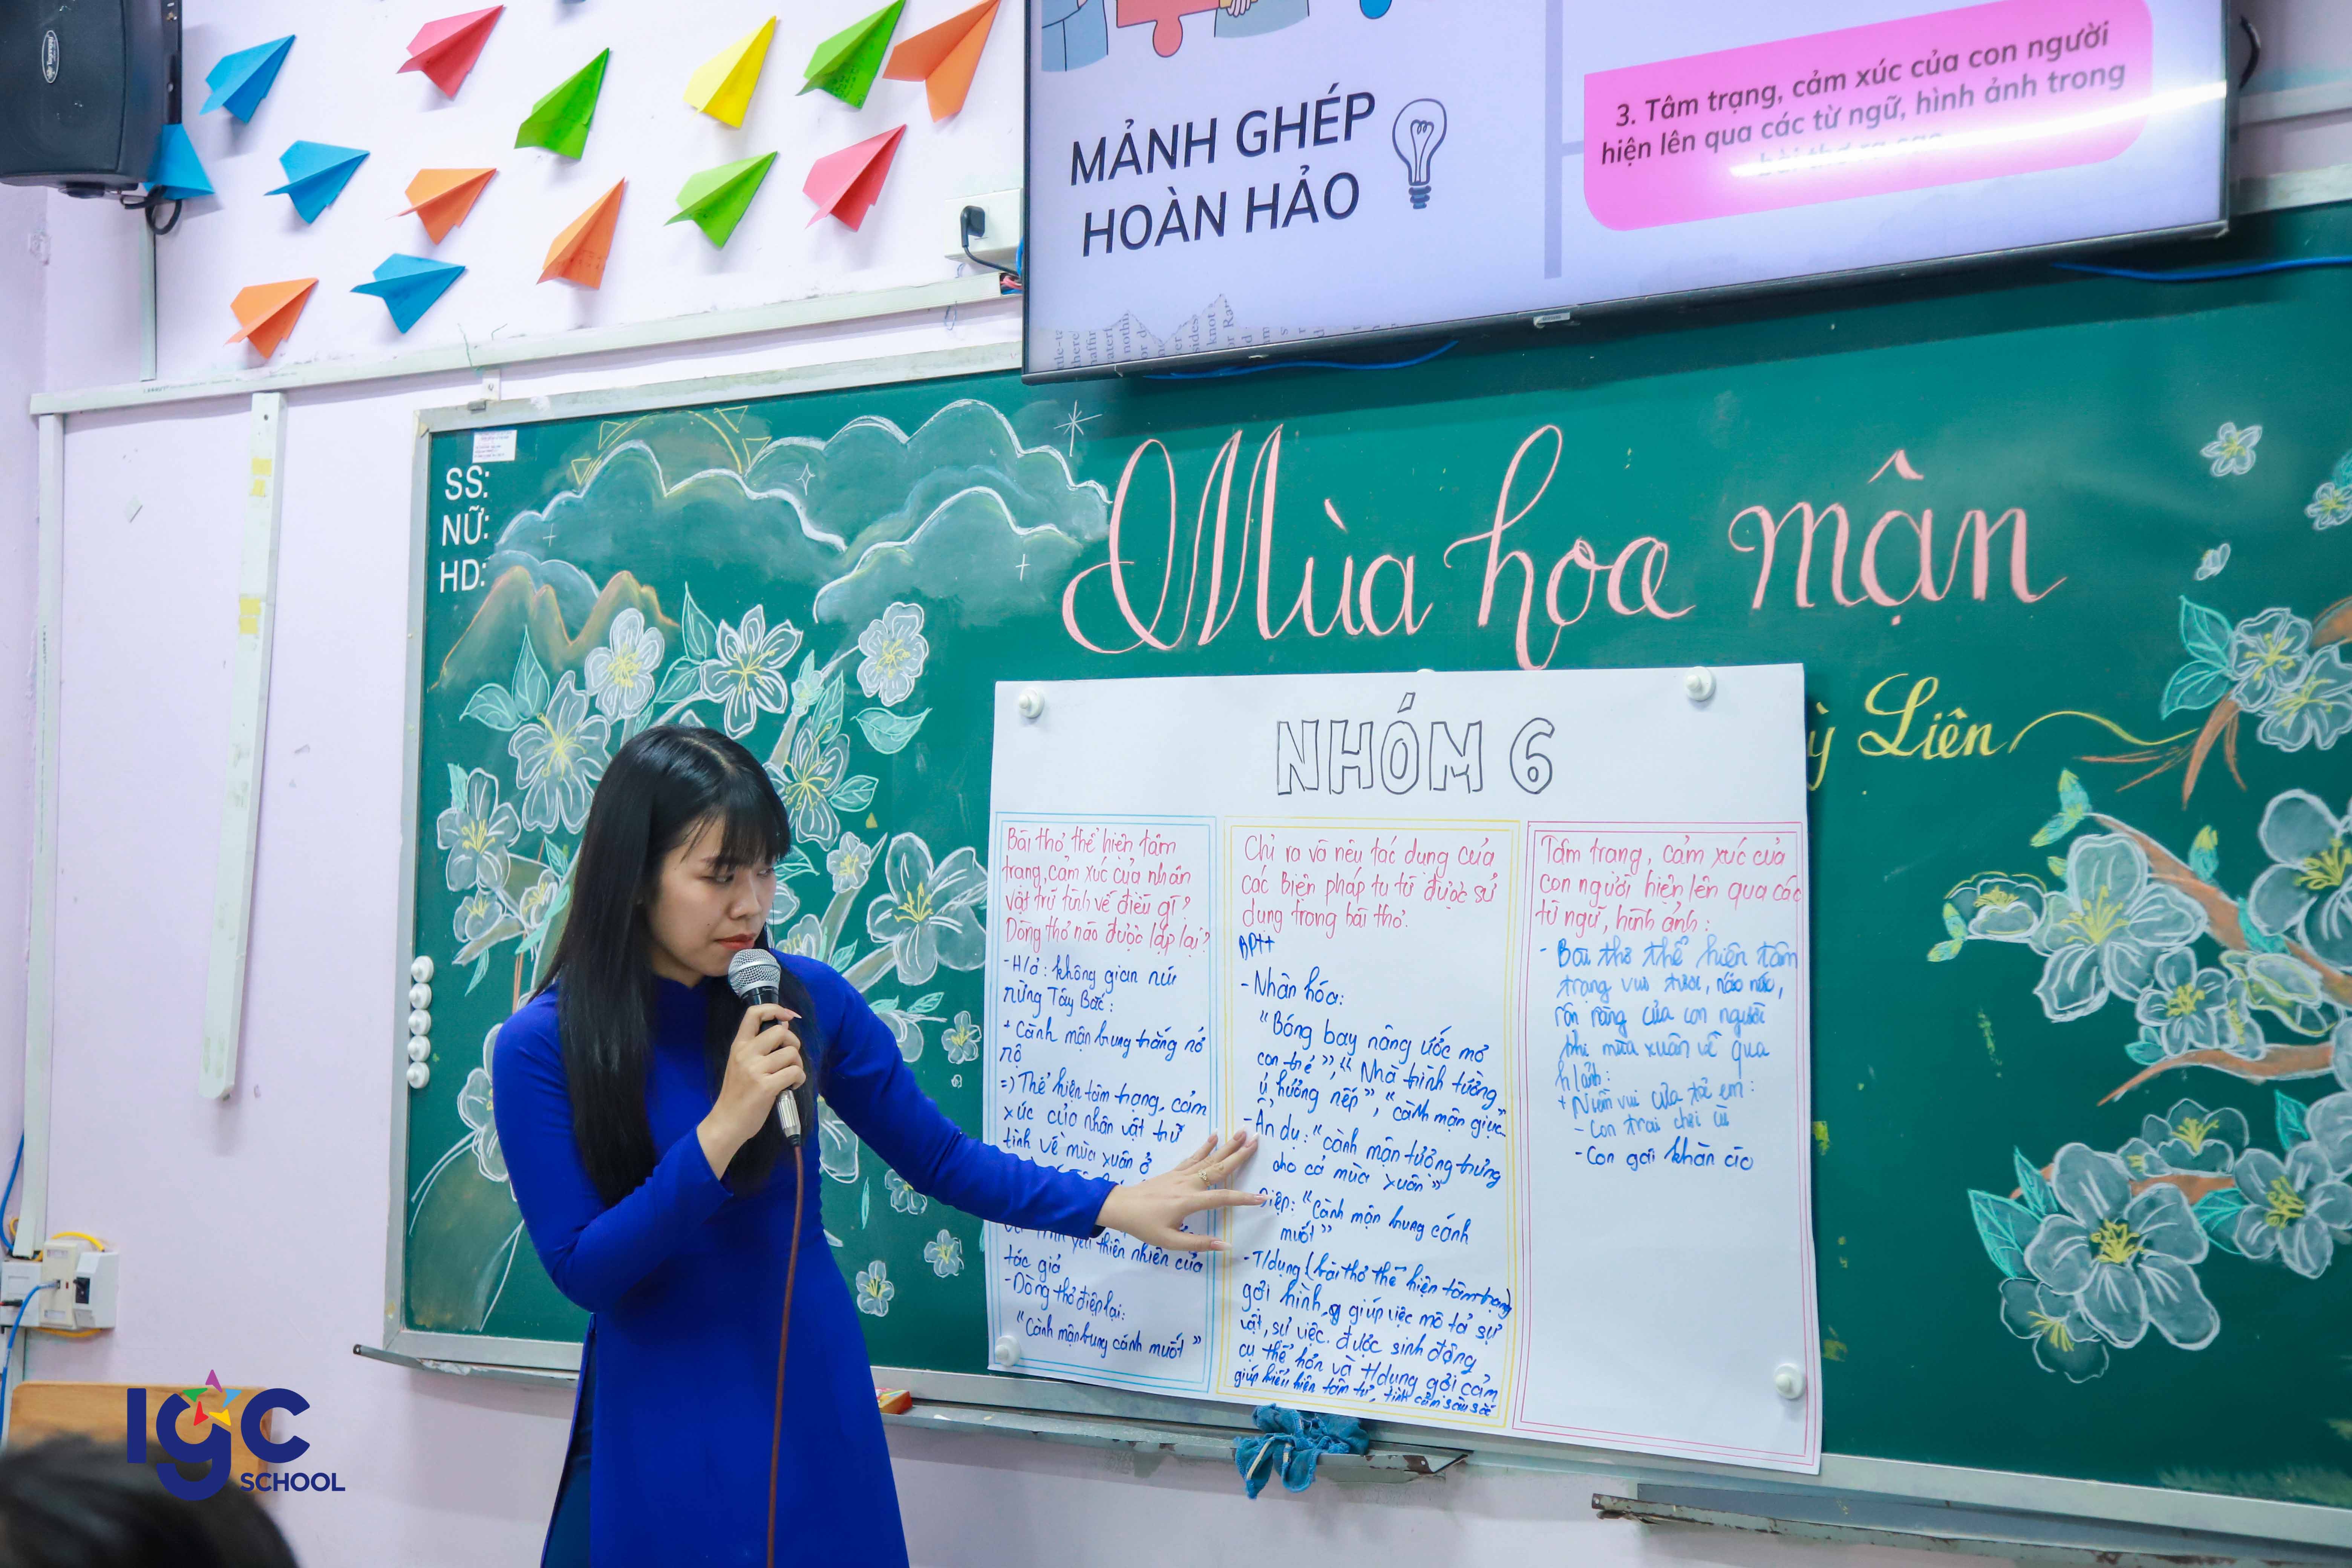 MẢNH GHÉP
HOÀN HẢO
3. Tâm trạng, cảm xúc của con người
hiện lên qua các từ ngữ, hình ảnh trong
bài thơ ra sao
SS:
NỮ:
HD:
Mùa hoa mận
ỳ Liên
NHÓM 6
Bài thơ thể hiện tâm
trạng, cảm xúc của nhân
vật trữ tình về điều gì?
Dòng thơ nào được lặp lại?
- H/ả: không gian núi
rừng Tây Bắc:
+ Cành mận bung trắng nở
rộ
=) Thể hiện tâm trạng, cảm
xúc của nhân vật trữ
tình về mùa xuân ở
yêu thiên nhiên của
tác giả
- Dòng thơ điệp lại:
"Cành mận bung cánh muốt"
Chỉ ra và nêu tác dụng của
các biện pháp tu từ được sử
dụng trong bài thơ.
BPTT
- Nhân hóa:
"Bóng bay nâng ước mơ
con trẻ", "Nhà trình tường
ủ hương nếp", "cành mận giục"
- Ẩn dụ: "cành mận tượng trưng
cho cả mùa xuân"
Điệp: "Cành mận bung cánh
muốt"
- T/dụng (bài thơ thể hiện tâm trạng)
gợi hình, giúp việc mô tả sự
vật, sự việc. được sinh động
cụ thể hơn và t/dụng gợi cảm
giúp biểu hiện tâm tư, tình cảm sâu sắc
Tâm trạng, cảm xúc của
con người hiện lên qua các
từ ngữ, hình ảnh:
- Bài thơ thể hiện tâm
trạng vui tươi, náo nức,
rộn ràng của con người
khi mùa xuân về qua
h/ảnh:
+ Niềm vui của trẻ em:
- Con trai chơi cù
- Con gái khăn áo
IGC
SCHOOL